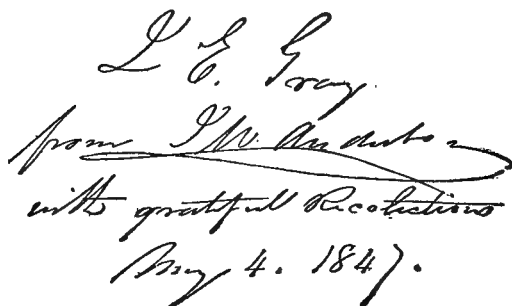 J E. Gray.
from J W. Audubon
with gratefull Recolections
May 4. 1847.